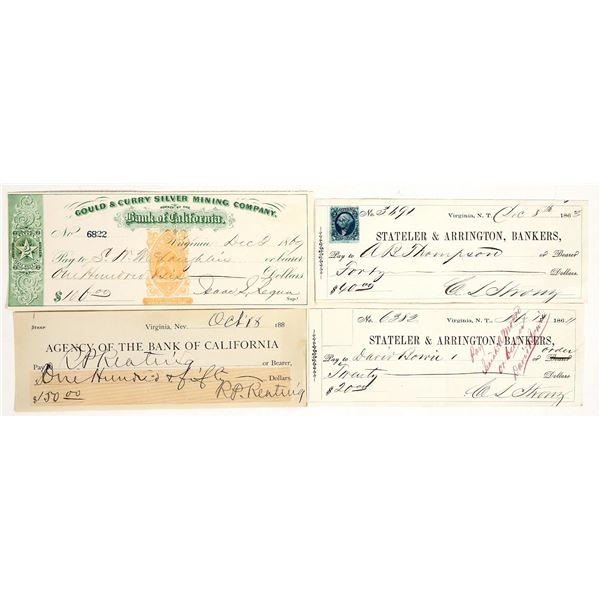 GOULD & CURRY SILVER MINING COMPANY.
Bank of California.
No. 6822
Virginia Dec 2 1869
Pay to S. W. McLaughlin or bearer
One Hundred six Dollars
$106.00
Isaac L. Requa
Supt
No. 3491
Virginia, N. T. Dec 8th 186
STATELER & ARRINGTON, BANKERS,
Pay to A R Thompson or Bearer
Forty Dollars
$40.00
C L Strong
STAMP
Virginia, Nev. Oct 18 188
AGENCY OF THE BANK OF CALIFORNIA
Pay to R P Keating or Bearer,
One Hundred & fifty Dollars.
$150.00
R.P. Keating
No. 6382
Virginia, N. T. 186
STATELER & ARRINGTON, BANKERS,
Pay to David Bowie or order
Twenty Dollars
$20.00
C L Strong
Pay
or bearer